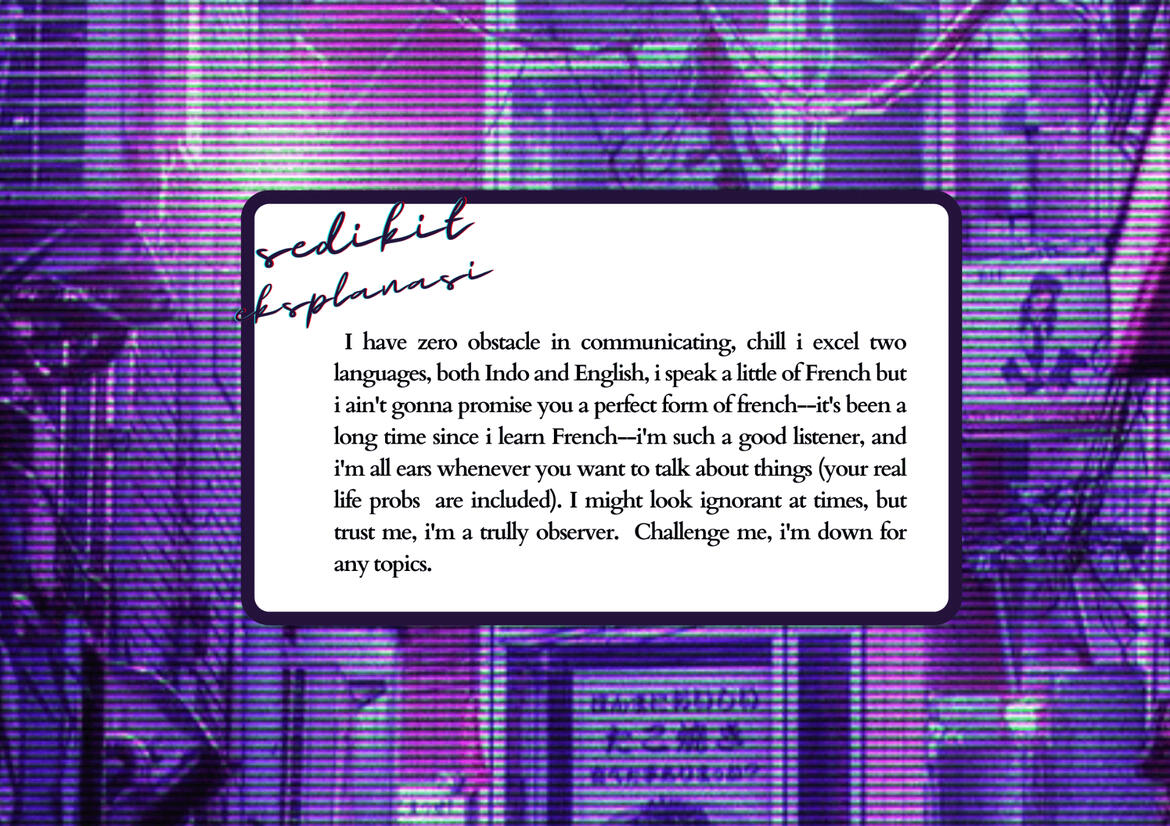 sedikit
eksplanasi
I have zero obstacle in communicating, chill i excel two
languages, both Indo and English, i speak a little of French but
i ain't gonna promise you a perfect form of french--it's been a
long time since i learn French--i'm such a good listener, and
i'm all ears whenever you want to talk about things (your real
life probs are included). I might look ignorant at times, but
trust me, i'm a trully observer. Challenge me, i'm down for
any topics.
たこ焼き